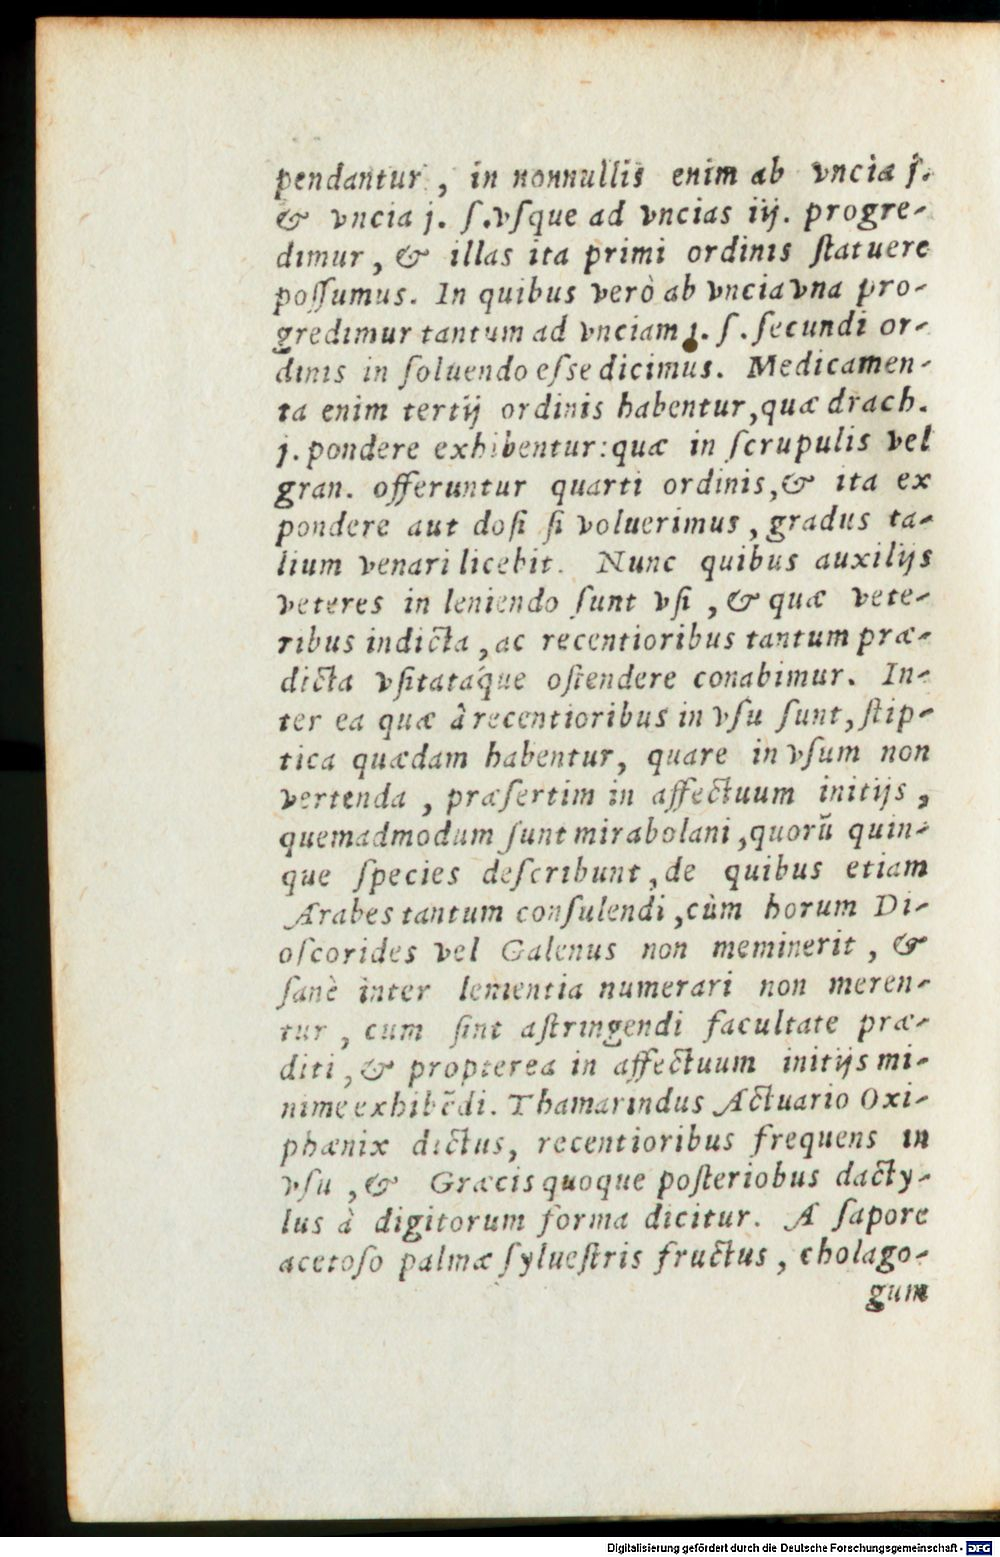 pendantur, in nonnullis enim ab vncia ſ.
& vncia j. ſ. vſque ad vncias iij. progre-
dimur, & illas ita primi ordinis ſtatuere
poſſumus. In quibus verò ab vncia vna pro-
gredimur tantum ad vnciam j. ſ. ſecundi or-
dinis in ſoluendo eſſe dicimus. Medicamen-
ta enim tertij ordinis habentur, quæ drach.
j. pondere exhibentur: quæ in ſcrupulis vel
gran. offeruntur quarti ordinis, & ita ex
pondere aut doſi ſi voluerimus, gradus ta-
lium venari licebit. Nunc quibus auxilijs
veteres in leniendo ſunt vſi, & quæ vete-
ribus indicta, ac recentioribus tantum præ-
dicta vſitatáque oſtendere conabimur. In-
ter ea quæ à recentioribus in vſu ſunt, ſtip-
tica quædam habentur, quare in vſum non
vertenda, præſertim in affectuum initijs,
quemadmodum ſunt mirabolani, quorũ quin-
que ſpecies deſcribunt, de quibus etiam
Arabes tantum conſulendi, cùm horum Di-
oſcorides vel Galenus non meminerit, &
ſanè inter lenientia numerari non meren-
tur, cum ſint aſtringendi facultate præ-
diti, & propterea in affectuum initijs mi-
nime exhibẽdi. Thamarindus Actuario Oxi-
phænix dictus, recentioribus frequens in
vſu, & Græcis quoque poſteriobus dacty-
lus à digitorum forma dicitur. A ſapore
acetoſo palmæ ſylueſtris fructus, cholago-
gum
Digitalisierung gefördert durch die Deutsche Forschungsgemeinschaft - DFG